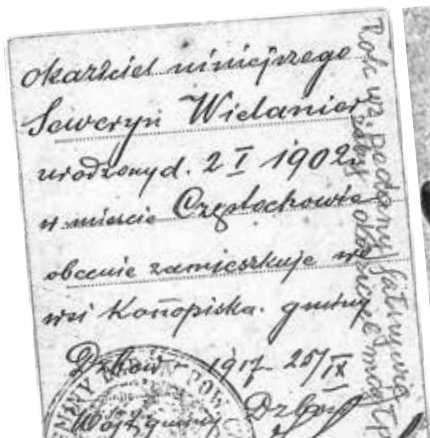 Okaziciel niniejszego
Seweryn Wielanier
urodzony d. 2 I 1902 r.
w mieście Częstochowie
obecnie zamieszkuje we
wsi Konopiska. gminy
Dzbów 1917 25/IX
Wójt gminy Dzbów
Rok ur. podany fałszywie
żeby okaziciel mógł